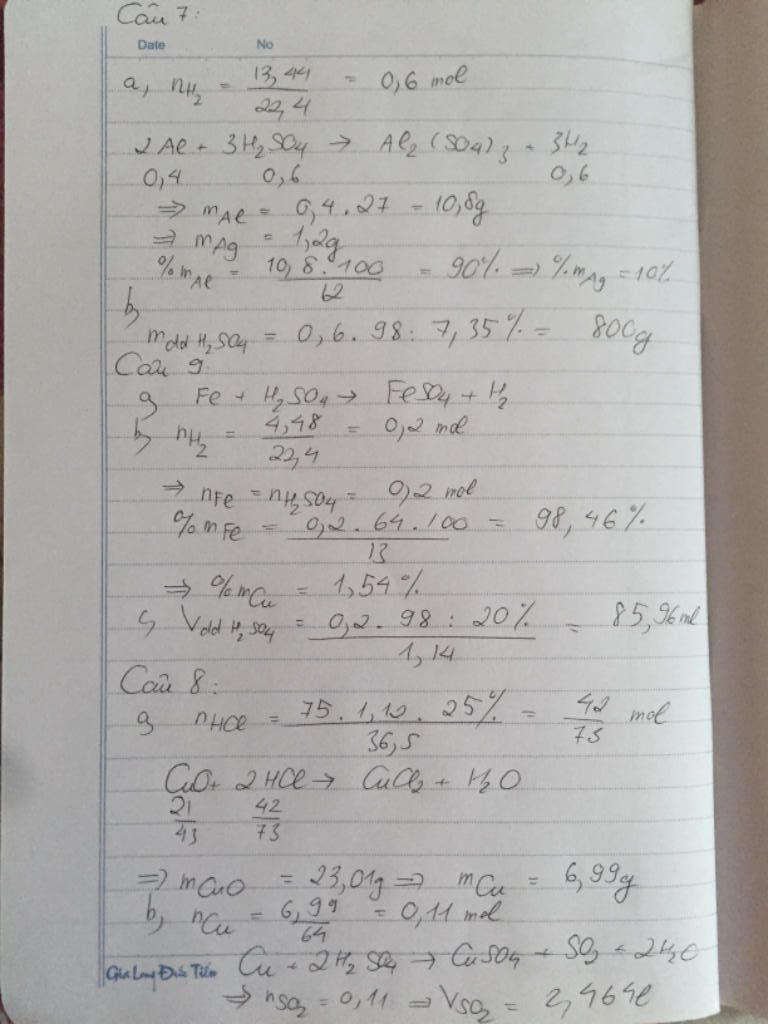 Câu 7:
Date No
a, nH₂ = 13,44/22,4 = 0,6 mol
2Al + 3H₂SO₄ → Al₂(SO₄)₃ + 3H₂
0,4 0,6 0,6
⇒ mAl = 0,4 . 27 = 10,8g
⇒ mAg = 1,2g
%mAl = 10,8 . 100/12 = 90% ⇒ %mAg = 10%
b,
mdd H₂SO₄ = 0,6 . 98 : 7,35% = 800g
Câu 9
a, Fe + H₂SO₄ → FeSO₄ + H₂
b, nH₂ = 4,48/22,4 = 0,2 mol
⇒ nFe = nH₂SO₄ = 0,2 mol
%mFe = 0,2 . 64 . 100/13 = 98,46%
⇒ %mCu = 1,54%
c, Vdd H₂SO₄ = 0,2 . 98 : 20%/1,14 = 85,96ml
Câu 8:
a, nHCl = 75 . 1,12 . 25%/36,5 = 42/73 mol
CuO + 2HCl → CuCl₂ + H₂O
21/43 42/73
⇒ mCuO = 23,01g ⇒ mCu = 6,99g
b, nCu = 6,99/64 = 0,11 mol
Cu + 2H₂SO₄ → CuSO₄ + SO₂ + 2H₂O
Gia Long Đức Tiến
⇒ nSO₂ = 0,11 ⇒ VSO₂ = 2,464l